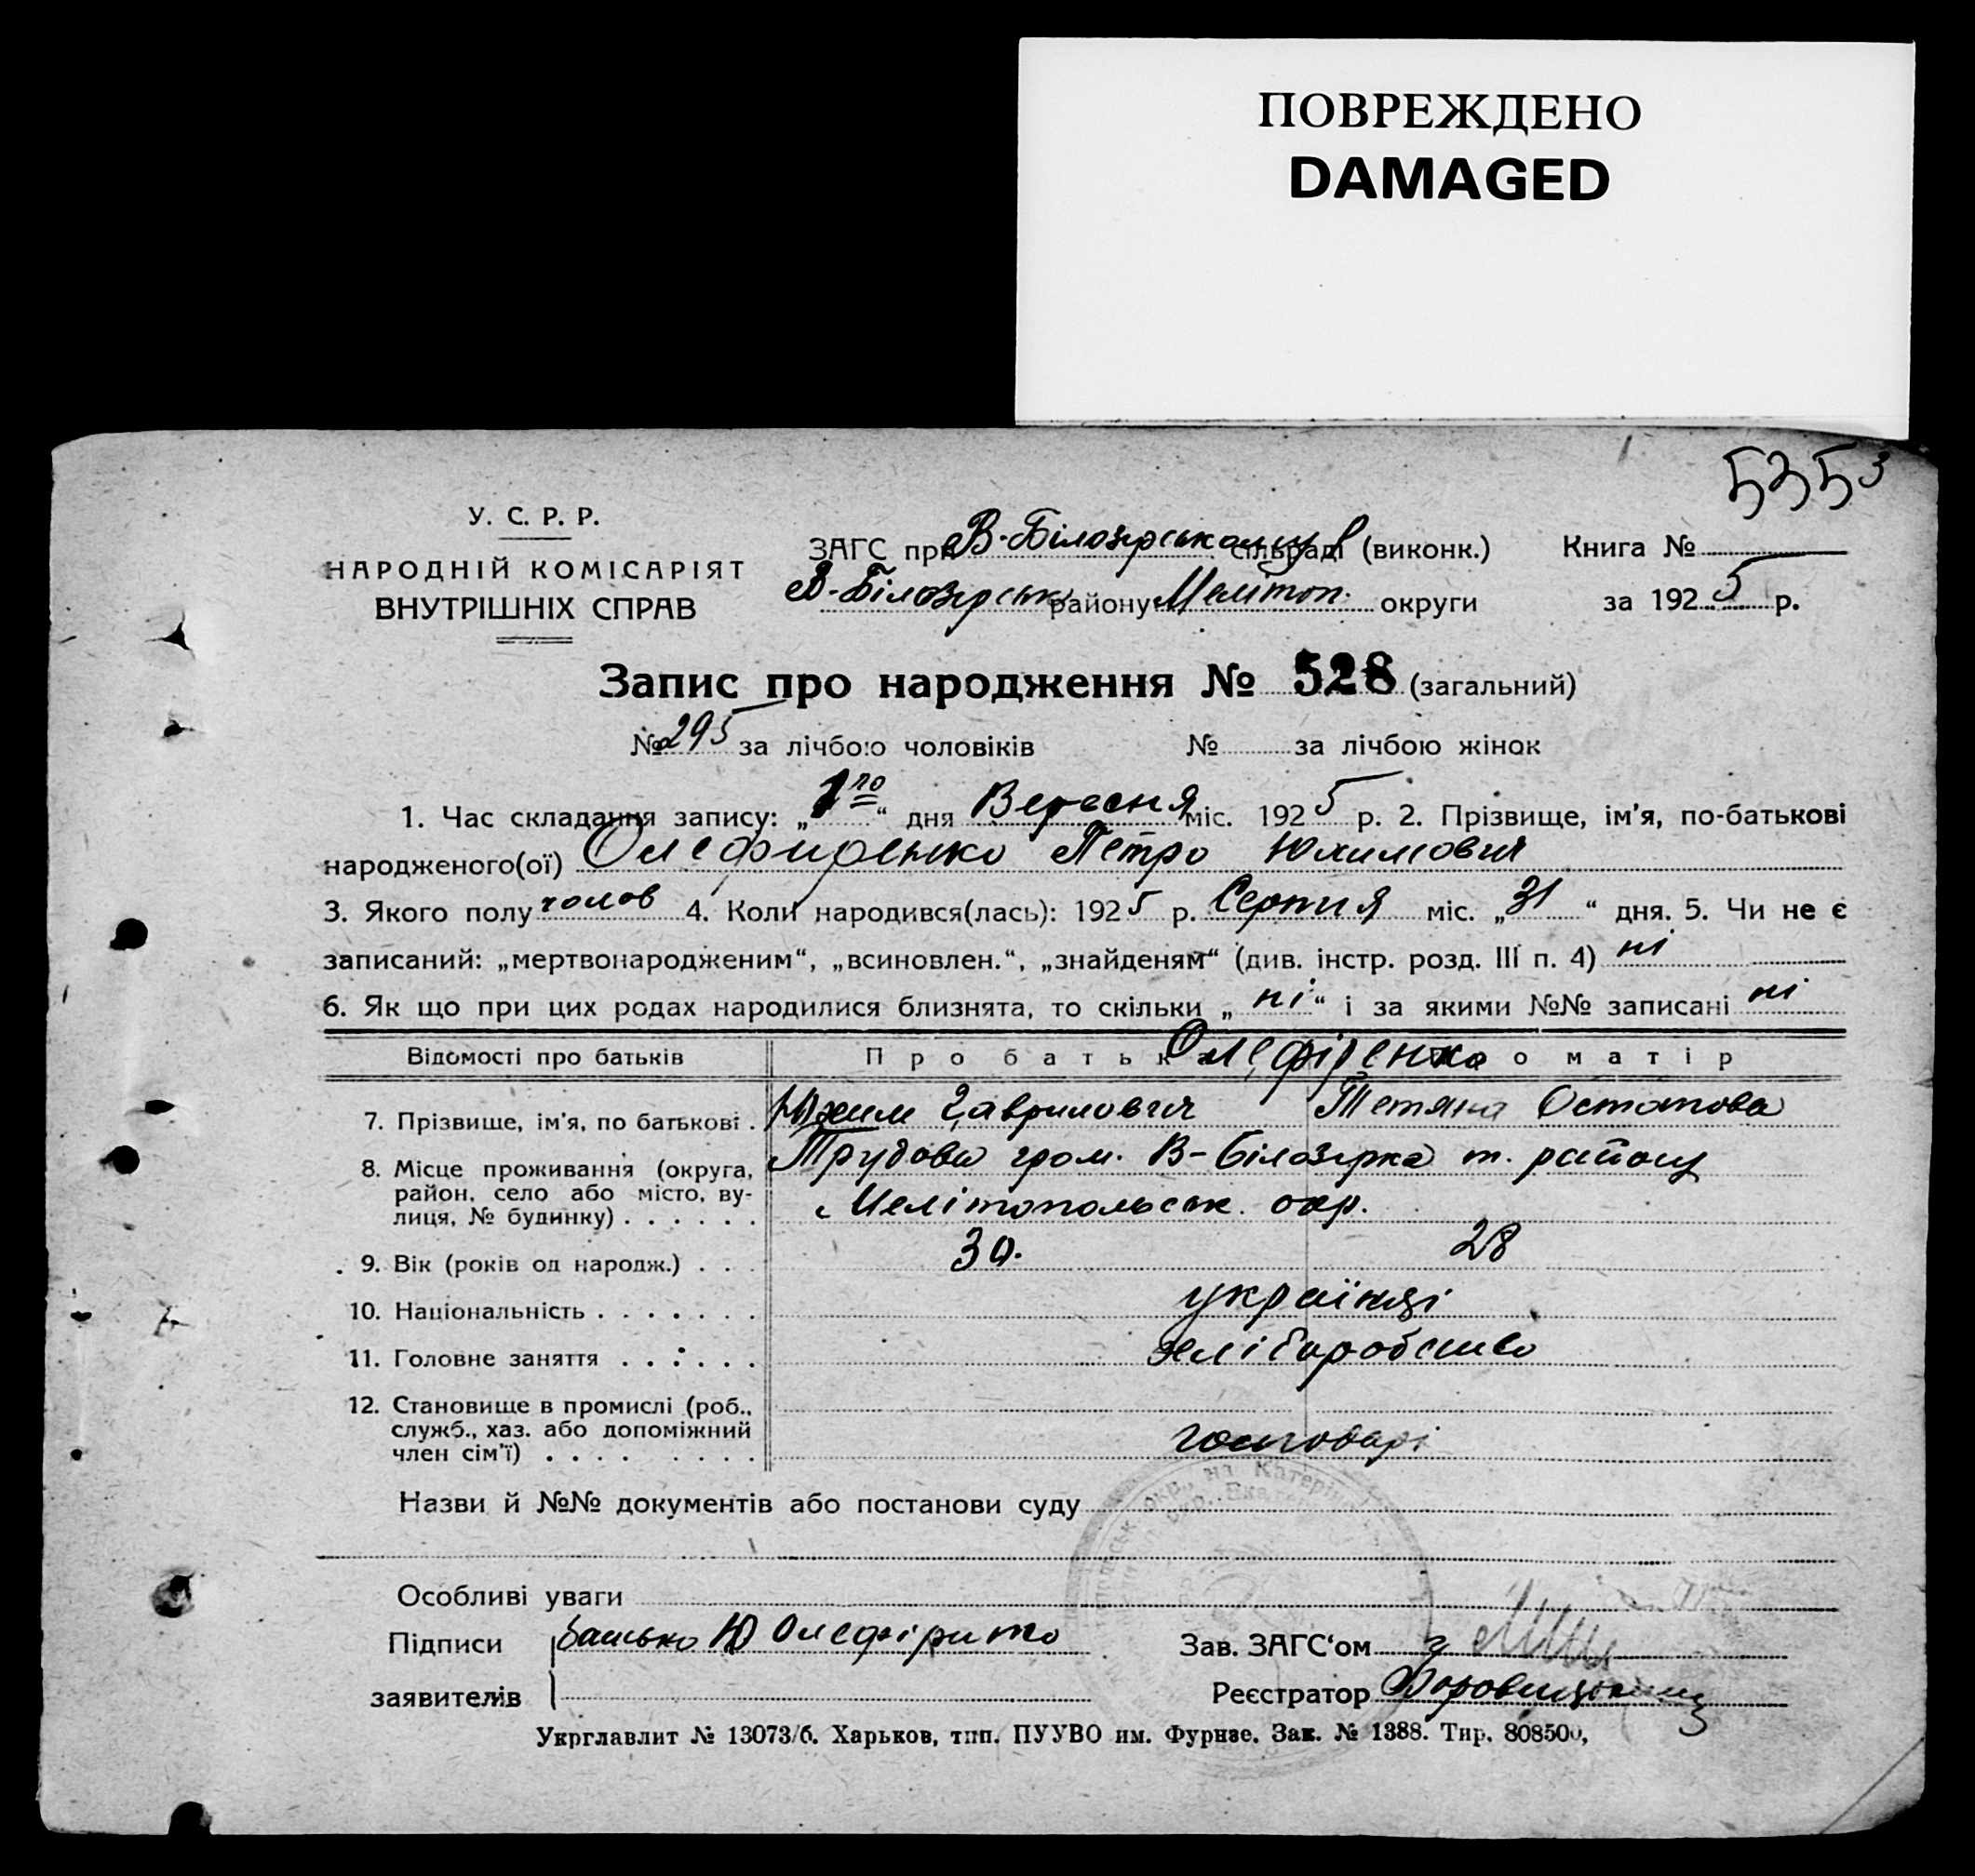 ПОВРЕЖДЕНО
DAMAGED
5353
У. С. Р. Р.
НАРОДНІЙ КОМІСАРІЯТ
ВНУТРІШНІХ СПРАВ
ЗАГС при В-Білозірському сільраді (виконк.)
В-Білозірськ району Мелітоп. округи
Книга №
за 1925 р.
Запис про народження № 528 (загальний)
№ 295 за лічбою чоловіків № за лічбою жінок
1. Час складання запису: „1го“ дня Вересня міс. 1925 р. 2. Прізвище, ім'я, по-батькові
народженого(ої) Олефиренко Петро Юхимович
3. Якого полу чолов 4. Коли народився(лась): 1925 р. Серпня міс. „31“ дня. 5. Чи не є
записаний: „мертвонародженим“, „всиновлен.“, „знайденям“ (див. інстр. розд. III п. 4) ні
6. Як що при цих родах народилися близнята, то скільки „ні“ і за якими №№ записані ні
Відомості про батьків Про батька Про матір
Олефіренко
7. Прізвище, ім'я, по батькові . Юхим Гаврилович Тетяна Остапова
8. Місце проживання (округа, Трудова гром. В-Білозірка т. району
район, село або місто, ву- Мелітопольськ. окр.
лиця, № будинку) . . . . . .
9. Вік (років од народж.) . . . 30. 28
10. Національність . . . . . . . українці
11. Головне заняття . . . . . . хліборобство
12. Становище в промислі (роб.,
служб., хаз. або допоміжний господарі
член сім'ї) . . . . . . . .
Назви й №№ документів або постанови суду
Особливі уваги
Підписи батько Ю Олефіринко Зав. ЗАГС'ом
заявителів Реєстратор
Укрглавлит № 13073/б. Харьков, тип. ПУУВО им. Фурнзе. Зак. № 1388. Тир. 808500,